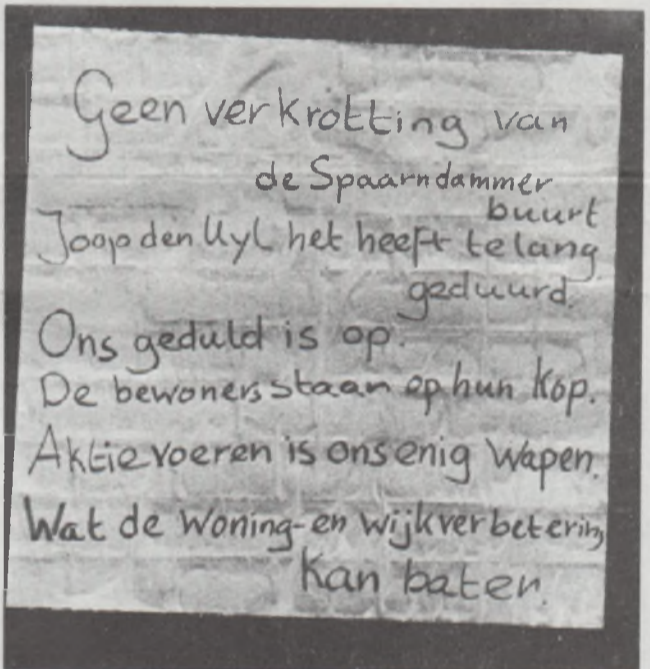 Geen verkrotting van
de Spaarndammer
buurt
Joop den Uyl het heeft te lang
geduurd.
Ons geduld is op.
De bewoners staan op hun Kop.
Aktie voeren is ons enig Wapen.
Wat de Woning- en wijkverbetering
Kan baten.